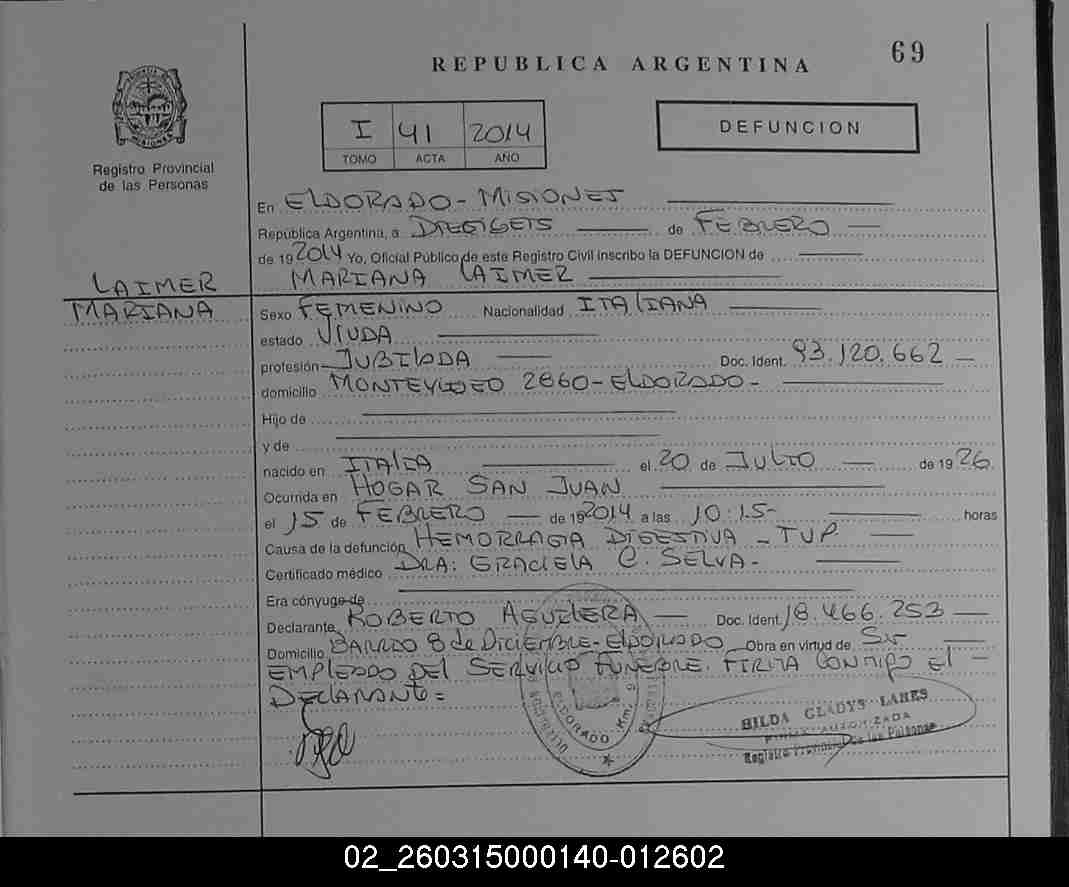 69
REPUBLICA ARGENTINA
I 41 2014
TOMO ACTA AÑO
DEFUNCION
Registro Provincial
de las Personas
En ELDORADO - MISIONES
República Argentina, a DIECISEIS de FEBRERO
de 19 2014 Yo, Oficial Público de este Registro Civil inscribo la DEFUNCION de
LAIMER MARIANA LAIMER
MARIANA Sexo FEMENINO Nacionalidad ITALIANA
estado VIUDA
profesión JUBILADA Doc. Ident. 93.120.662
domicilio MONTEVIDEO 2860 - ELDORADO -
Hijo de
y de
nacido en ITALIA el 20 de JULIO de 1926.
Ocurrida en HOGAR SAN JUAN
el 15 de FEBRERO de 19 2014 a las 10:15- horas
Causa de la defunción HEMORRAGIA DIGESTIVA - TVP
Certificado médico DRA: GRACIELA C. SELVA -
Era cónyuge de
Declarante ROBERTO AGUILERA Doc. Ident. 18.466.253
Domicilio BARRIO 8 de DICIEMBRE - ELDORADO Obra en virtud de Su
EMPLEADO DEL SERVICIO FUNEBRE. FIRMA CONMIGO El
DECLARANTE =
ELDORADO Km. 9
HILDA GLADYS LANES
FIRMA AUTORIZADA
Registro Provincial de las Personas
02_260315000140-012602